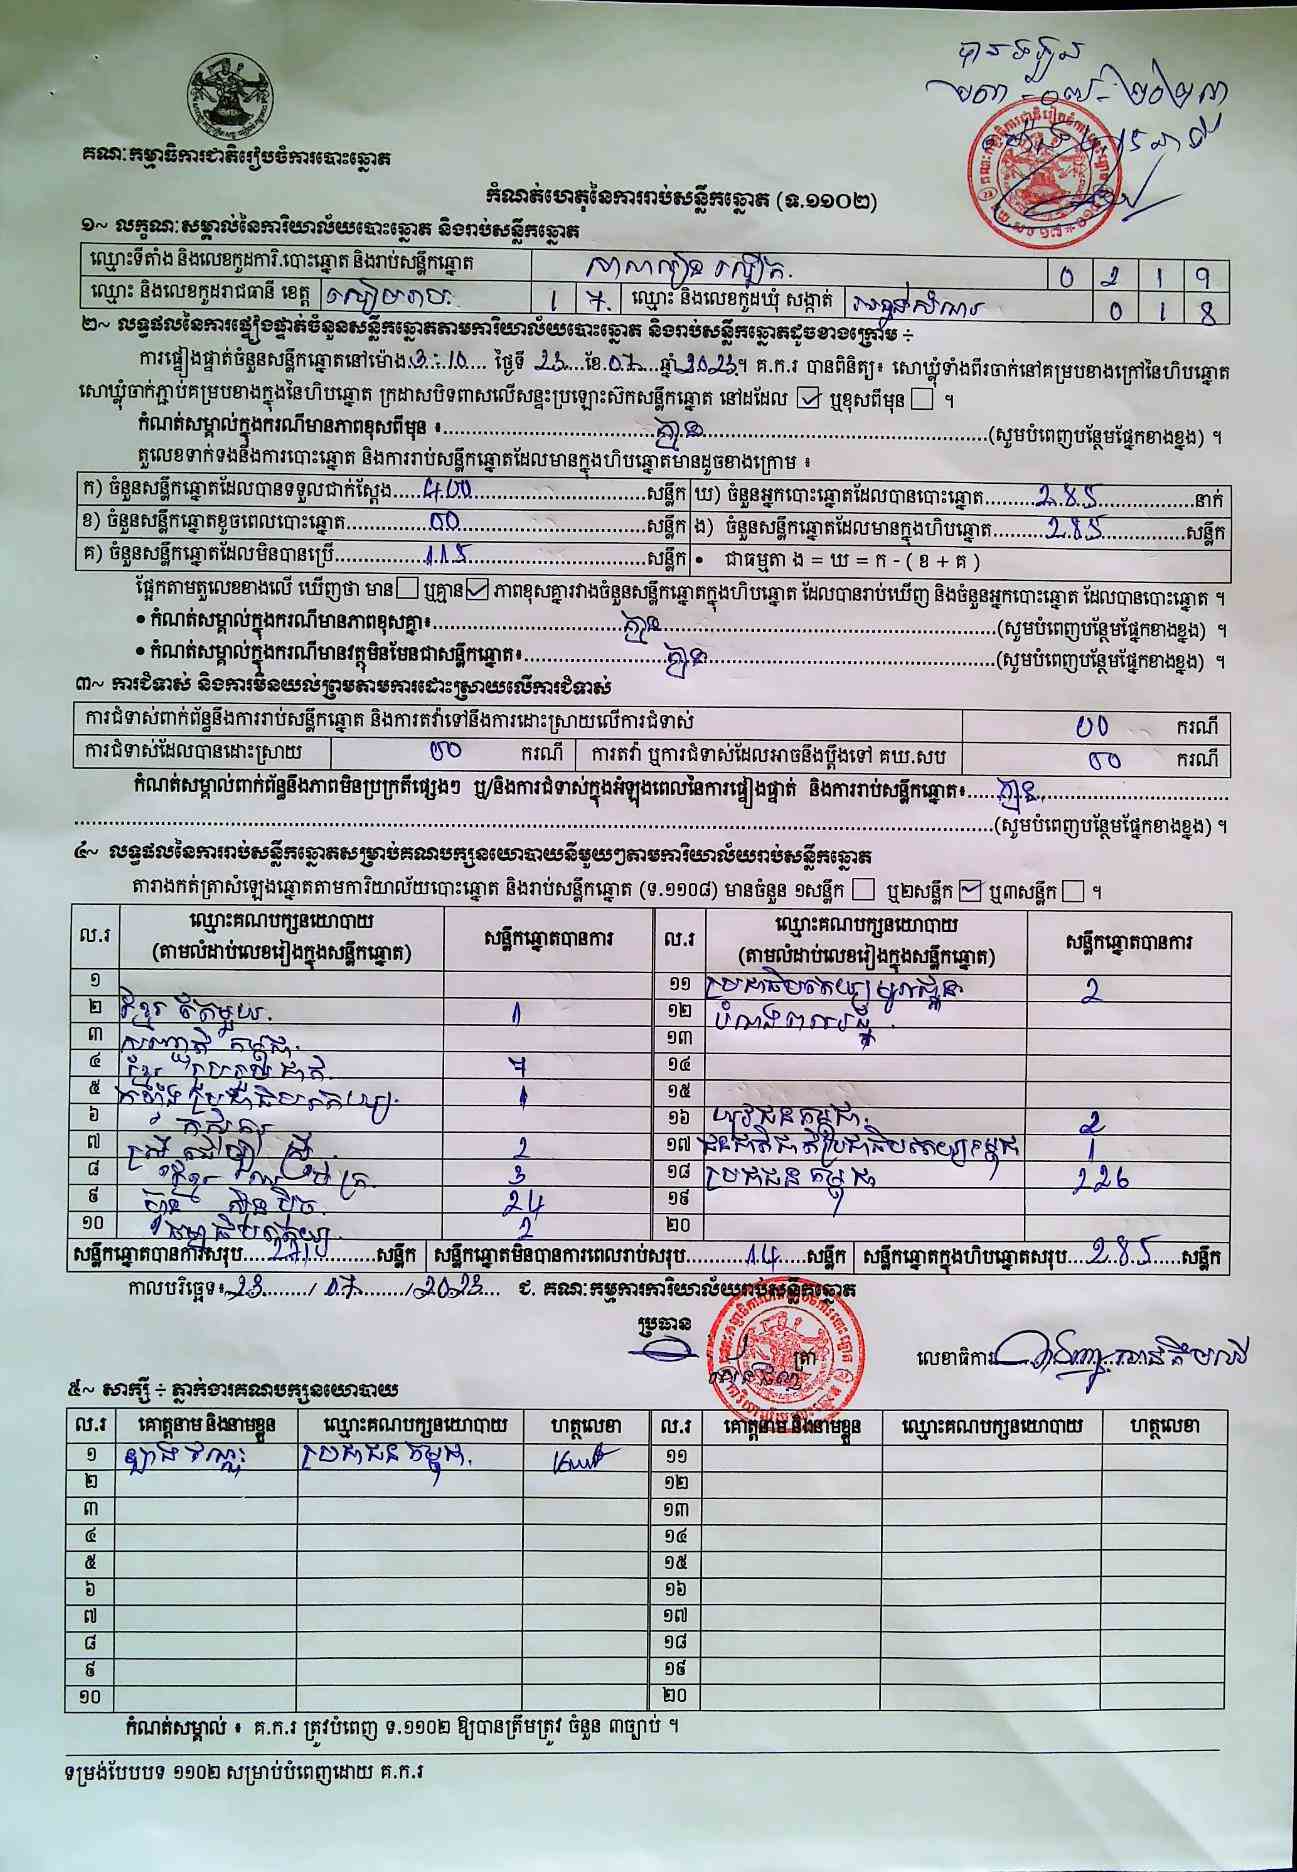 បានឃើញ
គណៈកម្មាធិការជាតិរៀបចំការបោះឆ្នោត
កំណត់ហេតុនៃការរាប់សន្លឹកឆ្នោត (ទ.១១០២)
១~ លក្ខណៈសម្គាល់នៃការិយាល័យបោះឆ្នោត និងរាប់សន្លឹកឆ្នោត
ឈ្មោះទីតាំង និងលេខកូដការិ.បោះឆ្នោត និងរាប់សន្លឹកឆ្នោត សាលារៀន 0 2 1 9
ឈ្មោះ និងលេខកូដរាជធានី ខេត្ត សៀមរាប 1 7 ឈ្មោះ និងលេខកូដឃុំ សង្កាត់ 0 1 8
២~ លទ្ធផលនៃការផ្ទៀងផ្ទាត់ចំនួនសន្លឹកឆ្នោតតាមការិយាល័យបោះឆ្នោត និងរាប់សន្លឹកឆ្នោតដូចខាងក្រោម ÷
ការផ្ទៀងផ្ទាត់ចំនួនសន្លឹកឆ្នោតនៅម៉ោង 3:10 ថ្ងៃទី 23 ខែ 07 ឆ្នាំ 2023 ។ គ.ក.រ បានពិនិត្យ៖ សោឃ្លុំទាំងពីរចាក់នៅគម្របខាងក្រៅនៃហិបឆ្នោត
សោឃ្លុំចាក់ភ្ជាប់គម្របខាងក្នុងនៃហិបឆ្នោត ក្រដាសបិទពាសលើសន្ទះប្រឡោះស៊កសន្លឹកឆ្នោត នៅដដែល ☑ ឬខុសពីមុន ☐ ។
កំណត់សម្គាល់ក្នុងករណីមានភាពខុសពីមុន ៖ គ្មាន (សូមបំពេញបន្ថែមផ្នែកខាងខ្នង) ។
តួលេខទាក់ទងនឹងការបោះឆ្នោត និងការរាប់សន្លឹកឆ្នោតដែលមានក្នុងហិបឆ្នោតមានដូចខាងក្រោម ៖
ក) ចំនួនសន្លឹកឆ្នោតដែលបានទទួលជាក់ស្តែង 400 សន្លឹក ឃ) ចំនួនអ្នកបោះឆ្នោតដែលបានបោះឆ្នោត 285 នាក់
ខ) ចំនួនសន្លឹកឆ្នោតខូចពេលបោះឆ្នោត 00 សន្លឹក ង) ចំនួនសន្លឹកឆ្នោតដែលមានក្នុងហិបឆ្នោត 285 សន្លឹក
គ) ចំនួនសន្លឹកឆ្នោតដែលមិនបានប្រើ 115 សន្លឹក • ជាធម្មតា ង = ឃ = ក - ( ខ + គ )
ផ្អែកតាមតួលេខខាងលើ ឃើញថា មាន ☐ ឬគ្មាន ☑ ភាពខុសគ្នារវាងចំនួនសន្លឹកឆ្នោតក្នុងហិបឆ្នោត ដែលបានរាប់ឃើញ និងចំនួនអ្នកបោះឆ្នោត ដែលបានបោះឆ្នោត ។
• កំណត់សម្គាល់ក្នុងករណីមានភាពខុសគ្នា៖ គ្មាន (សូមបំពេញបន្ថែមផ្នែកខាងខ្នង) ។
• កំណត់សម្គាល់ក្នុងករណីមានវត្ថុមិនមែនជាសន្លឹកឆ្នោត៖ គ្មាន (សូមបំពេញបន្ថែមផ្នែកខាងខ្នង) ។
៣~ ការជំទាស់ និងការមិនយល់ព្រមតាមការដោះស្រាយលើការជំទាស់
ការជំទាស់ពាក់ព័ន្ធនឹងការរាប់សន្លឹកឆ្នោត និងការតវ៉ាទៅនឹងការដោះស្រាយលើការជំទាស់ 00 ករណី
ការជំទាស់ដែលបានដោះស្រាយ 00 ករណី ការតវ៉ា ឬការជំទាស់ដែលអាចនឹងប្តឹងទៅ គឃ.សប 00 ករណី
កំណត់សម្គាល់ពាក់ព័ន្ធនឹងភាពមិនប្រក្រតីផ្សេងៗ ឬ/និងការជំទាស់ក្នុងអំឡុងពេលនៃការផ្ទៀងផ្ទាត់ និងការរាប់សន្លឹកឆ្នោត៖ គ្មាន
(សូមបំពេញបន្ថែមផ្នែកខាងខ្នង) ។
៤~ លទ្ធផលនៃការរាប់សន្លឹកឆ្នោតសម្រាប់គណបក្សនយោបាយនីមួយៗតាមការិយាល័យរាប់សន្លឹកឆ្នោត
តារាងកត់ត្រាសំឡេងឆ្នោតតាមការិយាល័យបោះឆ្នោត និងរាប់សន្លឹកឆ្នោត (ទ.១១០៨) មានចំនួន ១សន្លឹក ☐ ឬ២សន្លឹក ☑ ឬ៣សន្លឹក ☐ ។
ល.រ ឈ្មោះគណបក្សនយោបាយ (តាមលំដាប់លេខរៀងក្នុងសន្លឹកឆ្នោត) សន្លឹកឆ្នោតបានការ ល.រ ឈ្មោះគណបក្សនយោបាយ (តាមលំដាប់លេខរៀងក្នុងសន្លឹកឆ្នោត) សន្លឹកឆ្នោតបានការ
១ ១១ 2
២ ខ្មែរតែមួយ 1 ១២
៣ កម្ពុជា ១៣
៤ ខ្មែររួបរួមជាតិ 7 ១៤
៥ 1 ១៥
៦ កសិករ ១៦ យុវជនកម្ពុជា 2
៧ 2 ១៧ 1
៨ 3 ១៨ ប្រជាជនកម្ពុជា 226
៩ ហ៊្វុនស៊ិនប៉ិច 24 ១៩
១០ 2 ២០
សន្លឹកឆ្នោតបានការសរុប 271 សន្លឹក សន្លឹកឆ្នោតមិនបានការពេលរាប់សរុប 14 សន្លឹក សន្លឹកឆ្នោតក្នុងហិបឆ្នោតសរុប 285 សន្លឹក
កាលបរិច្ឆេទ៖ 23 / 07 / 2023 ជ. គណៈកម្មការការិយាល័យរាប់សន្លឹកឆ្នោត
ប្រធាន
ត្រា លេខាធិការ
៥~ សាក្សី ÷ ភ្នាក់ងារគណបក្សនយោបាយ
ល.រ គោត្តនាម និងនាមខ្លួន ឈ្មោះគណបក្សនយោបាយ ហត្ថលេខា ល.រ គោត្តនាម និងនាមខ្លួន ឈ្មោះគណបក្សនយោបាយ ហត្ថលេខា
១ ប្រជាជនកម្ពុជា ១១
២ ១២
៣ ១៣
៤ ១៤
៥ ១៥
៦ ១៦
៧ ១៧
៨ ១៨
៩ ១៩
១០ ២០
កំណត់សម្គាល់ ៖ គ.ក.រ ត្រូវបំពេញ ទ.១១០២ ឱ្យបានត្រឹមត្រូវ ចំនួន ៣ច្បាប់ ។
ទម្រង់បែបបទ ១១០២ សម្រាប់បំពេញដោយ គ.ក.រ